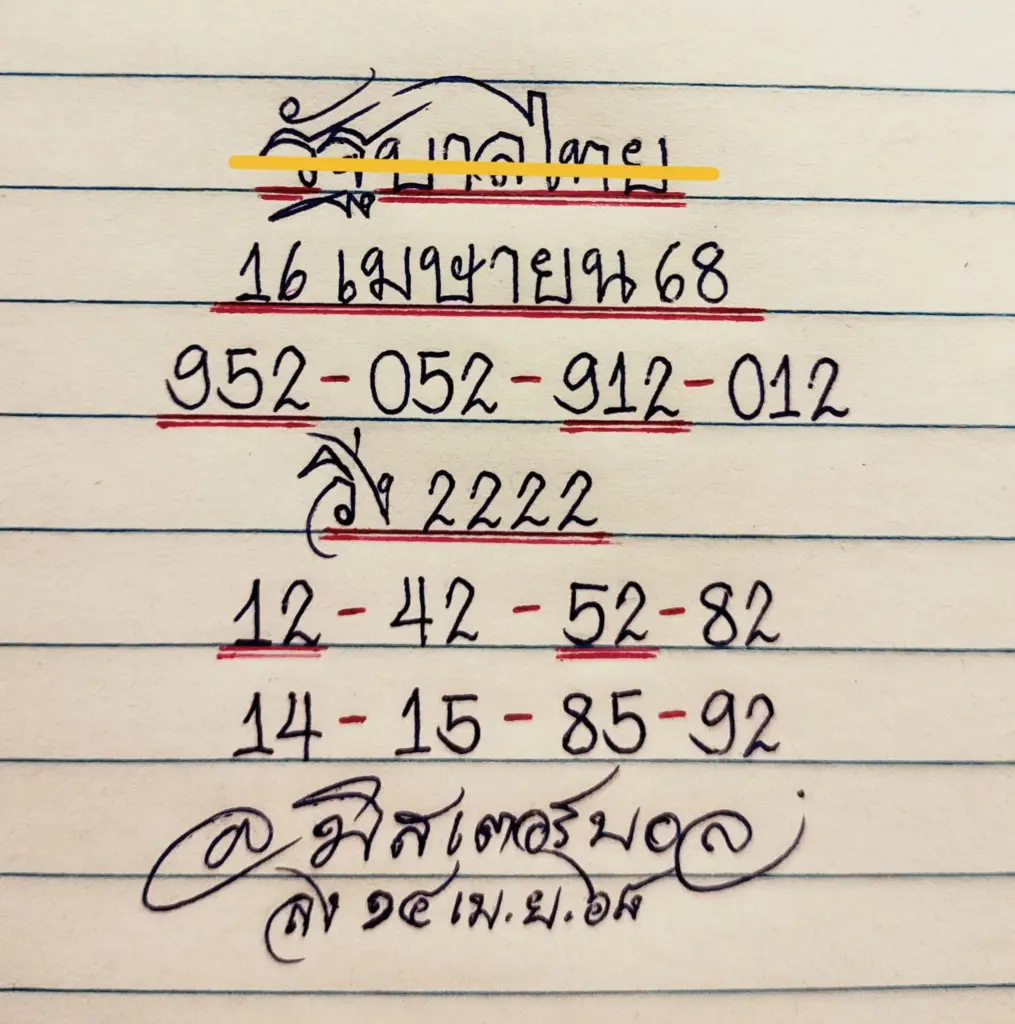 รัฐบาลไทย
16 เมษายน 68
952 - 052 - 912 - 012
วิ่ง 2222
12 - 42 - 52 - 82
14 - 15 - 85 - 92
@ มิสเตอร์บอล
ลง ๑๔ เม.ย. ๖๘